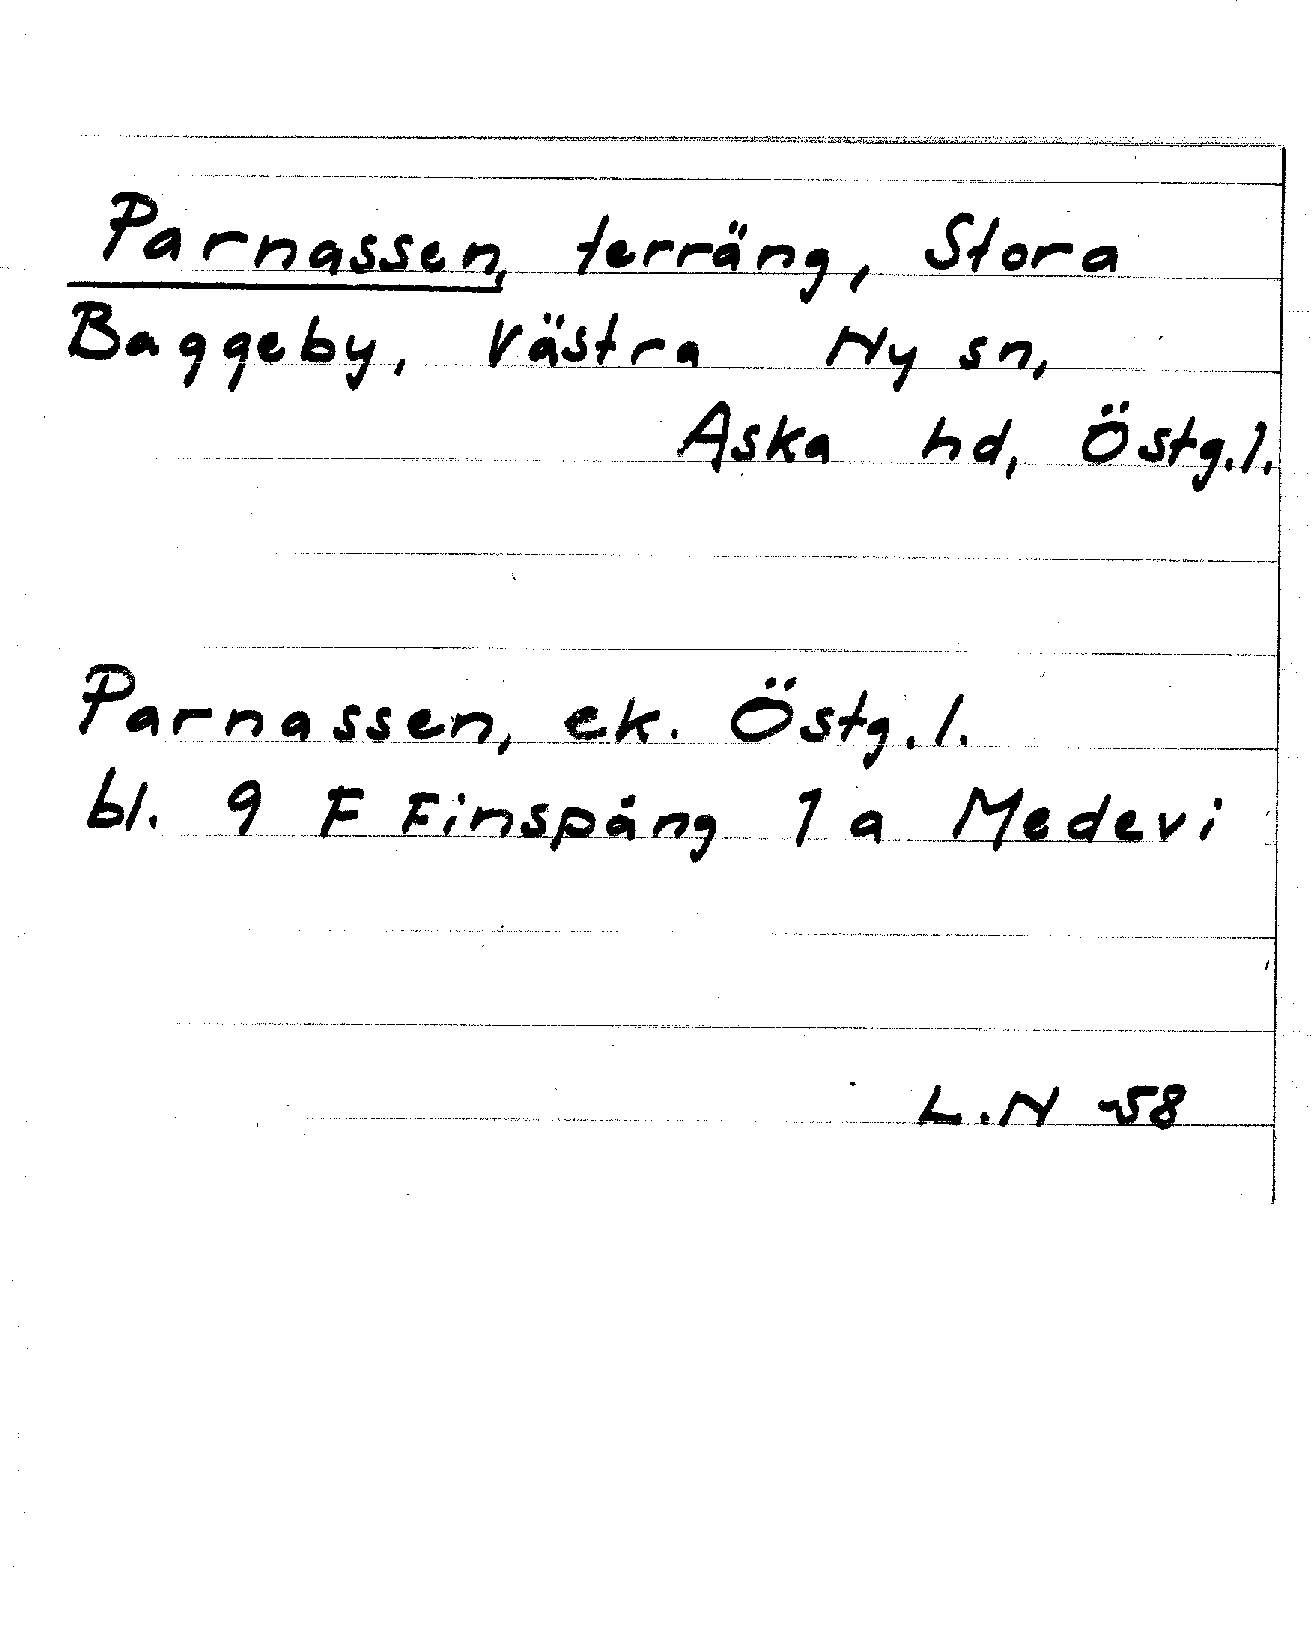 Parnassen, terräng, Stora
Baggeby, Västra Ny sn,
Aska hd, Östg.l.
Parnassen, ek. Östg.l.
bl. 9 F Finspång 1 a Medevi
L.N -58